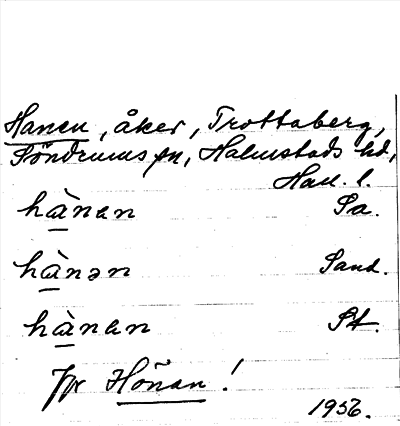 Hanen, åker, Trottaberg,
Söndrums sn, Halmstads hd,
Hall. l.
hànan Sa.
hànən Sand.
hànan St.
jfr Hönan!
1956.